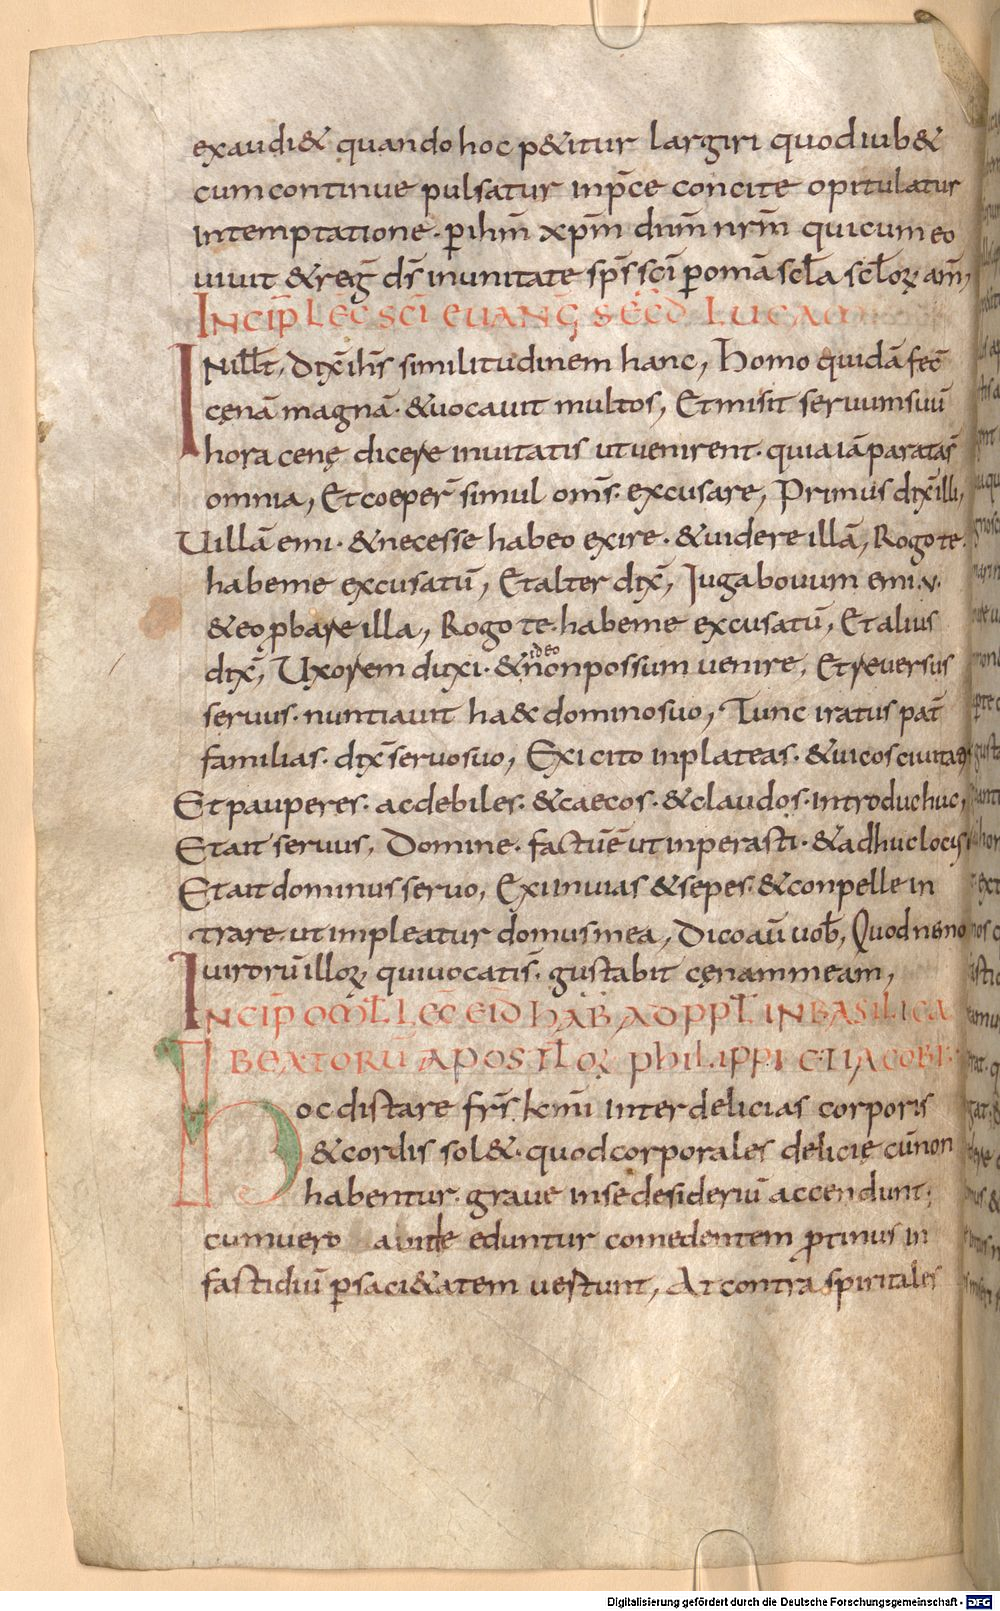 exaudi& quando hoc p&itur largiri quod iub&
cum continue pulsatur inp̄ce concite opitulatur
intemptatione · ꝑ ihm̄ xp̄m dnm̄ nrm̄ qui cum eo
uiuit & reg̅ ds̄ inunitate sp̄s sc̄i ꝑ omā scl̄a scl̄oꝝ am̄,
INCIP̄ LEC̄ SC̄I EUANG̅ SEC̄D LUCAM
INill̄t, dix̄ ih̄s similitudinem hanc, Homo quidā fec̄
cęnā magnā · & uocauit multos, Et misit seruum suū
hora cenę dicere inuitatis ut uenirent · quia iā parata s̄
omnia, Et coeper̄ simul om̄s · excusare, Primus dix̄ illi,
Uillā emi · & necesse habeo exire · & uidere illā, Rogo te
habe me excusatū, Et alter dix̄, Iuga bouum emi · v ·
& eo ꝓbare illa, Rogo te · habe me excusatū, Et alius
dix̄, Uxorem duxi · & ideo non possum uenire, Et reuersus
seruus · nuntiauit ha&c domino suo, Tunc iratus pat̄
familias · dix̄ seruo suo, Exi cito inplateas · & uicos ciuitatis
Et pauperes · ac debiles · & caecos · & claudos · introduc huc,
Et ait seruus, Domine · factū ē ut inperasti · & adhuc locus
Et ait dominus seruo, Exi inuias & sepes · & conpelle in
trare · ut impleatur domus mea, Dico aū uob̄, Quod nemo
uiroru̅ illoꝝ qui uocati s̄ · gustabit cęnam meam,
INCIP̄ OML̄ LEC̄ EID̄ HAB̄ AD PPL̄ IN BASILICA
BEATORŪ APOSTL̄OꝜ PHILIPPI ET IACOBI
Hoc distare frs̄ km̄i inter delicias corporis
& cordis sol& · quod corporales delicię cū non
habentur · graue inse desideriū accendunt ·
cum uero auide eduntur comedentem ꝓtinus in
fastidiū ꝑ saci&atem uertunt, At contra spiritales
Digitalisierung gefördert durch die Deutsche Forschungsgemeinschaft - DFG